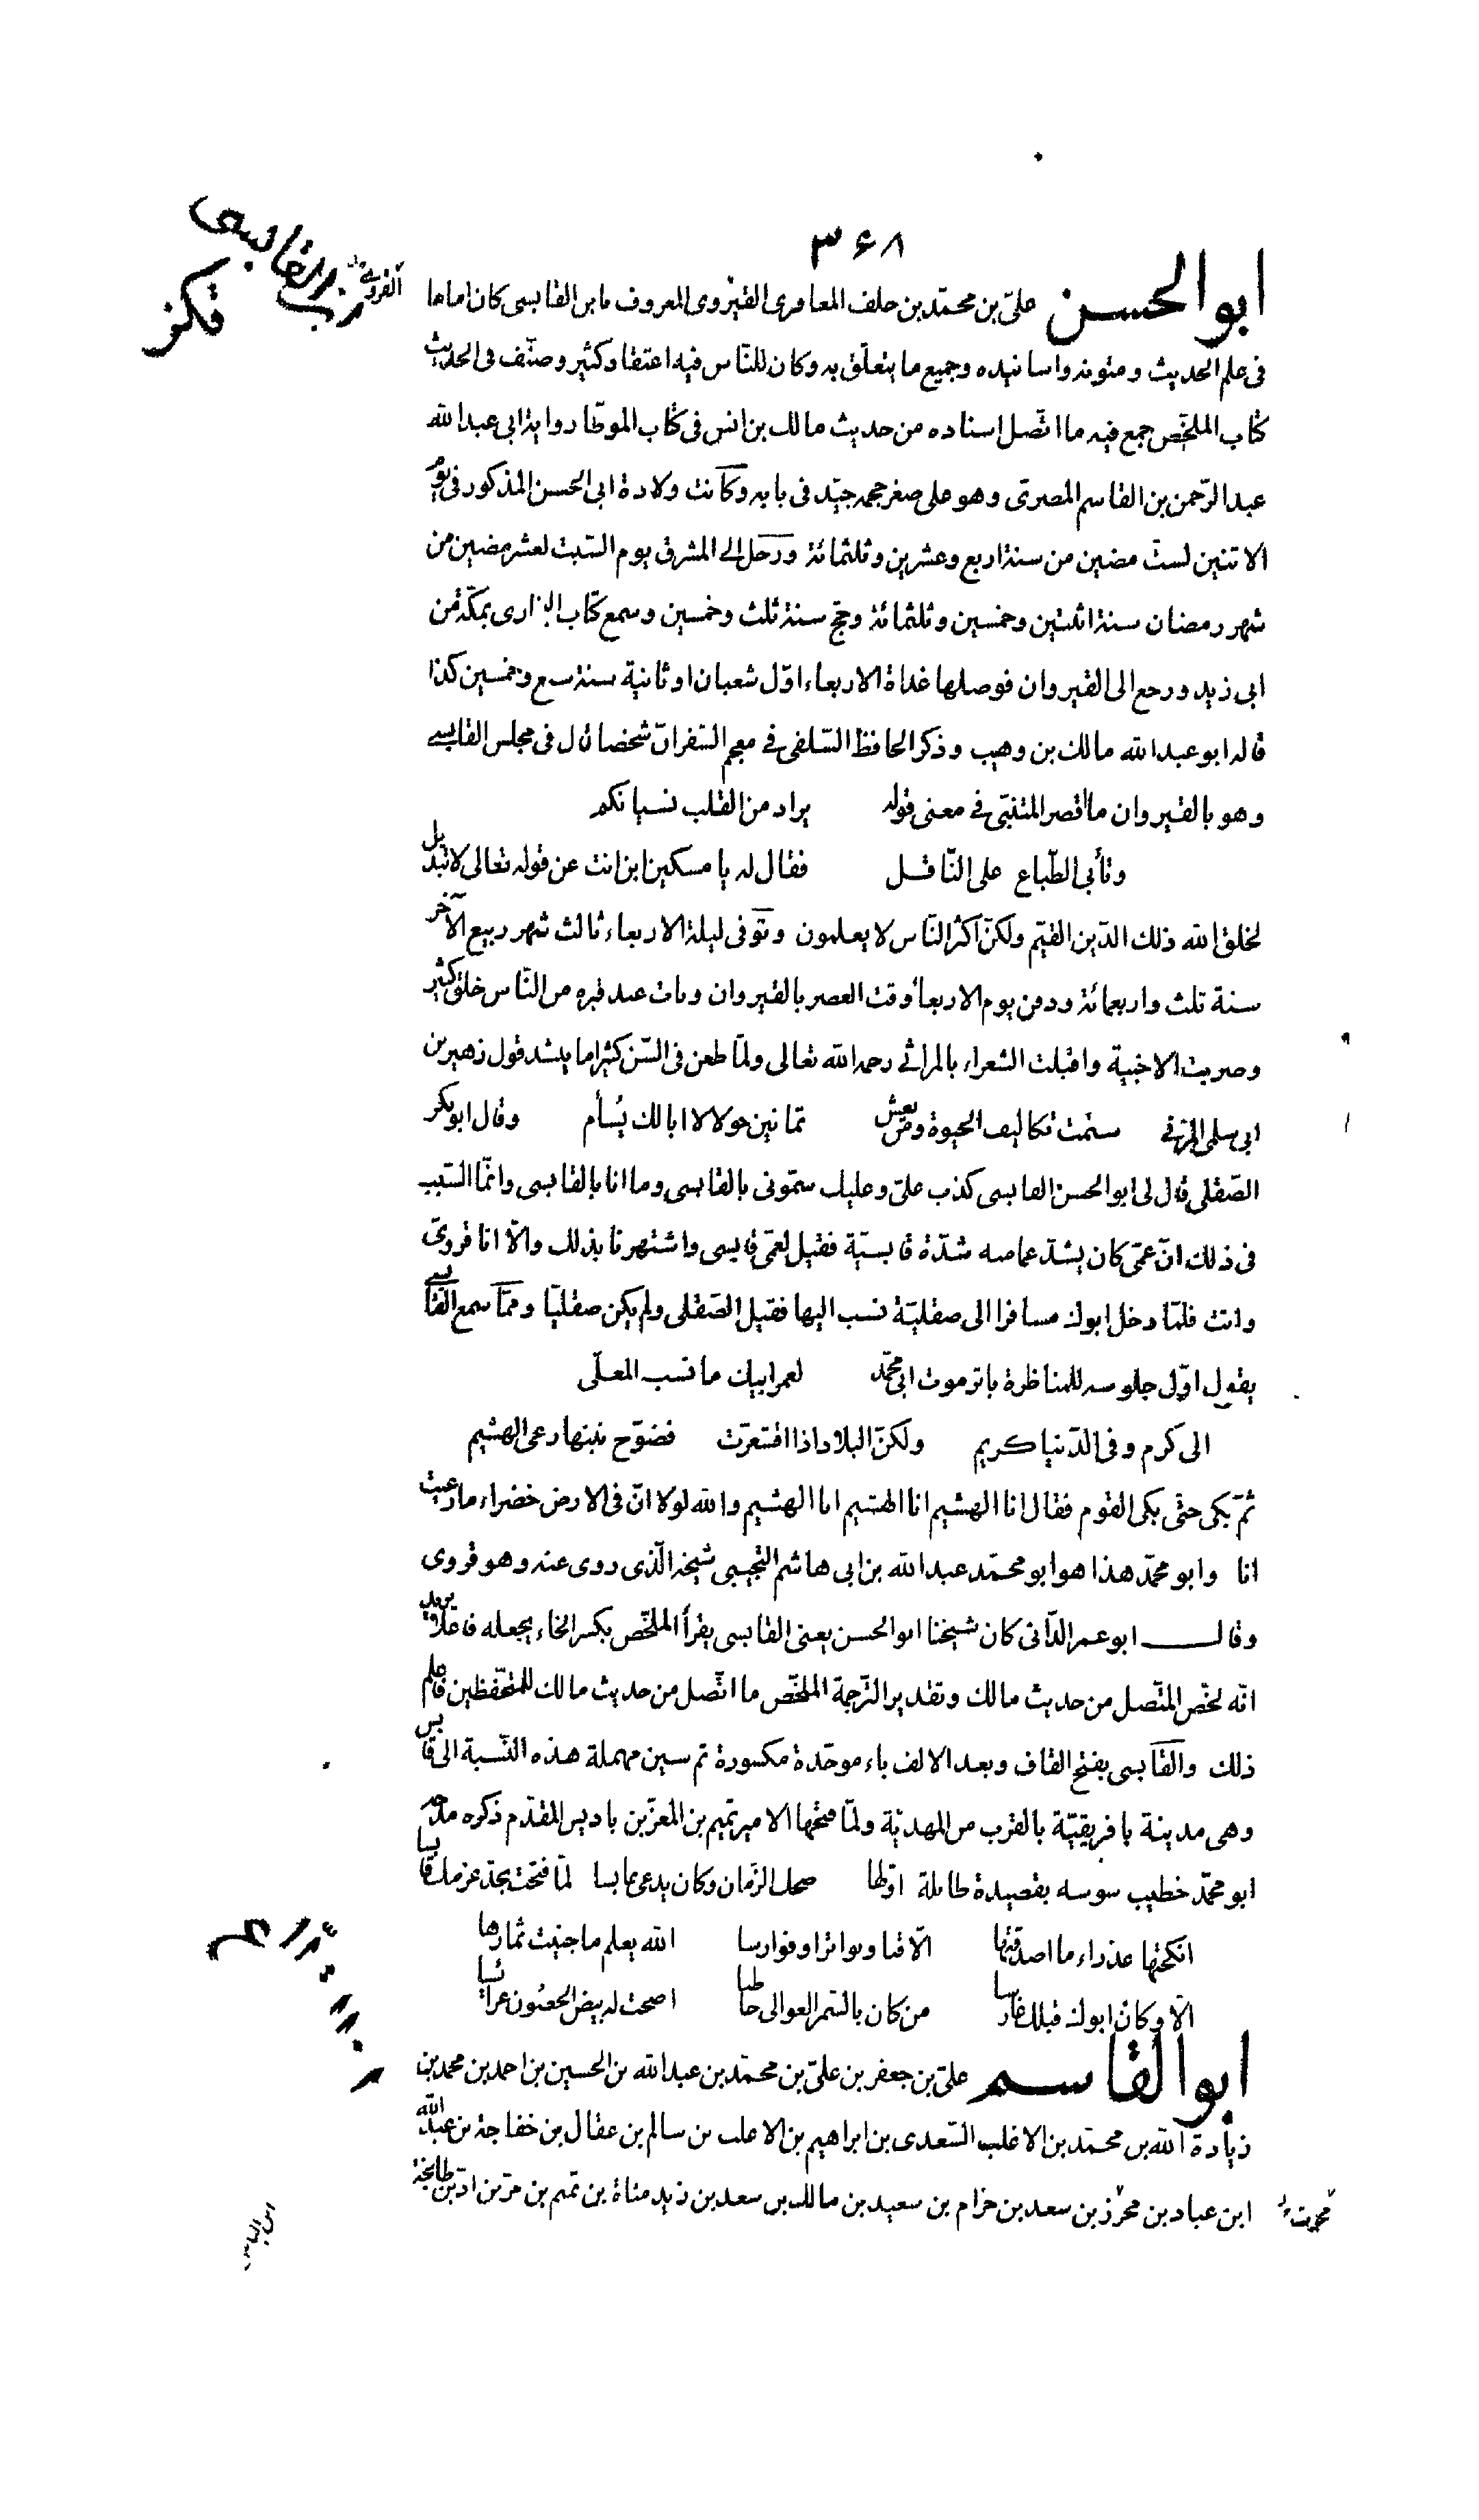 ٣٤٨
ابو الحسن علىّ بن محمّد بن خلف المعافرى القيروى المعروف بابن القابسى كان اماما
فى علم الحديث ومتونه واسانيده وجميع ما يتعلّق به وكان للنّاس فيه اعتقاد كثير وصنّف فى الحديث
كتاب الملخّص جمع فيه ما اتّصل اسناده من حديث مالك بن انس فى كتاب الموطّا رواية ابى عبد الله
عبد الرّحمن بن القاسم المصرىّ وهو على صغر حجمه جيّد فى بابه وكانت ولادة ابى الحسن المذكور فى يوم
الاثنين لستّ مضين من سنة اربع وعشرين وثلثمائة ورحل الى المشرق يوم السّبت لعشر مضين من
شهر رمضان سنة اثنتين وخمسين وثلثمائة وحجّ سنة ثلث وخمسين وسمع كتاب البخارى بمكّة من
ابى زيد ورجع الى القيروان فوصلها غداة الاربعاء اوّل شعبان او ثانية سنة سبع وخمسين كذا
قاله ابو عبد الله مالك بن وهيب وذكر الحافظ السّلفى فى معجم السّفر انّ شخصا قال فى مجلس القابسى
وهو بالقيروان ما اقصر المتنبّى فى معنى قوله يراد من القلب نسيانكم
وتأبى الطّباع على النّاقل فقال له يا مسكين اين انت عن قوله تعالى لا تبديل
لخلق الله ذلك الدّين القيّم ولكنّ اكثر النّاس لا يعلمون وتوفى ليلة الاربعاء ثالث شهر ربيع الآخر
سنة ثلث واربعمائة ودفن يوم الاربعاء وقت العصر بالقيروان وبات عند قبره من النّاس خلق كثير
وضربت الاخبية واقبلت الشعراء بالمراثى رحمه الله تعالى ولمّا طعن فى السّن كثيرا ما ينشد قول زهير بن
ابى سلمى المزنى سئمت تكاليف الحيوة ومن يعش ثمانين حولا لا ابا لك يسأم وقال ابو بكر
الصّقلى قال لى ابو الحسن القابسى كذب علىّ وعليك سمّونى بالقابسى وما انا بالقابسى وانّما السّبب
فى ذلك انّ عمّى كان يشدّ عمامته شدّة قابسيّة فقيل لعمّى قابسى واشتهرنا بذلك والّا انا قروىّ
وانت فلمّا دخل ابوك مسافرا الى صقليّة نسب اليها فقيل الصّقلى ولم يكن صقليّا وممّا سمع القابسى
يقول اوّل جلوسه للمناظرة باثر موت ابى محمّد لعمر ابيك ما نسب المعلّى
الى كرم وفى الدّنيا كريم ولكنّ البلاد اذا اقشعرّت فصوّح نبتها رعى الهشيم
ثمّ بكى حتّى بكى القوم فقال انا الهشيم انا الهشيم انا الهشيم والله لولا انّ فى الارض خضراء ما رعيت
انا وابو محمّد هذا هو ابو محمّد عبد الله بن ابى هاشم التجيبى شيخه الّذى روى عنه وهو قروى
وقال ابو عمر الدّانى كان شيخنا ابو الحسن يعنى القابسى يقرأ الملخّص بكسر الخاء يجعله فاعلا يريد
انّه لخّص المتّصل من حديث مالك وتقدير التّرجمة الملخّص ما اتّصل من حديث مالك للمتحفّظين فاعلم
ذلك والقابسى بفتح القاف وبعد الالف باء موحّدة مكسورة ثم سين مهملة هذه النّسبة الى قابس
وهى مدينة بافريقيّة بالقرب من المهديّة ولمّا فتحها الامير تميم بن المعزّ بن باديس المقدّم ذكره مدحه
ابو محمّد خطيب سوسه بقصيدة طايلة اوّلها ضحك الزّمان وكان يدعى عابسا لمّا فتحت بحدّ عزمك قابسا
انكحتها عذراء ما اصدقتها الّا قنا وبواترا وفوارسا الله يعلم ما جنيت ثمارها
الّا وكان ابوك قبلك غارسا من كان بالسّمر العوالى خاطبا اضحت له بيض الحصون عرائسا
ابو القاسم علىّ بن جعفر بن علىّ بن محمّد بن عبد الله بن الحسين بن احمد بن محمد بن
زيادة الله بن محمّد بن الاغلب السّعدى بن ابراهيم بن الاغلب بن سالم بن عقال بن خفاجة بن عبد الله
ابن عباد بن محرّز بن سعد بن حزام بن سعيد بن مالك بن سعد بن زيد مناة بن تميم بن مرّ بن ادّ بن طابخة